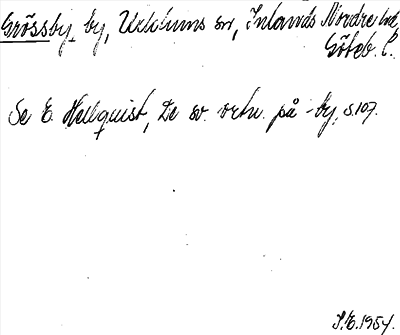 Grössby, by, Ucklums sn, Inlands Nordre hd,
Göteb. l.
Se E. Hellquist, De sv. ortn. på -by, s. 107.
S.E. 1954.